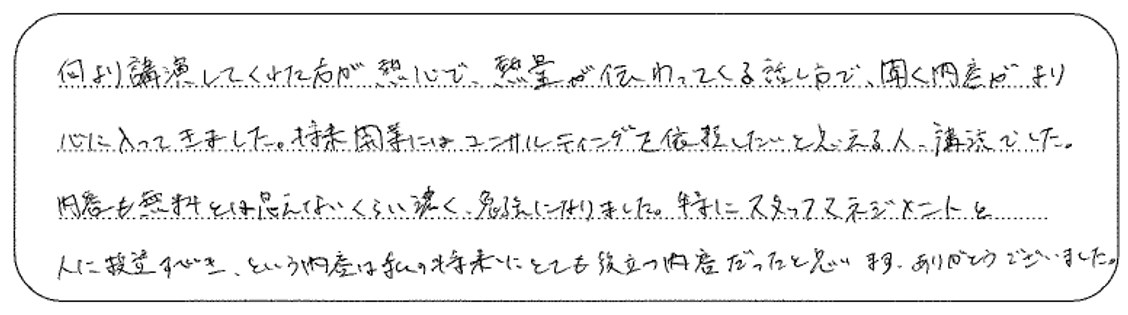 何より講演してくれた方が熱心で、熱量が伝わってくる話し方で、聞く内容がより
心に入ってきました。将来開業にはコンサルティングを依頼したいと思える人、講演でした。
内容も無料とは思えないくらい濃く、勉強になりました。特にスタッフマネジメントと
人に投資すべき、という内容は私の将来にとても役立つ内容だったと思います、ありがとうございました。